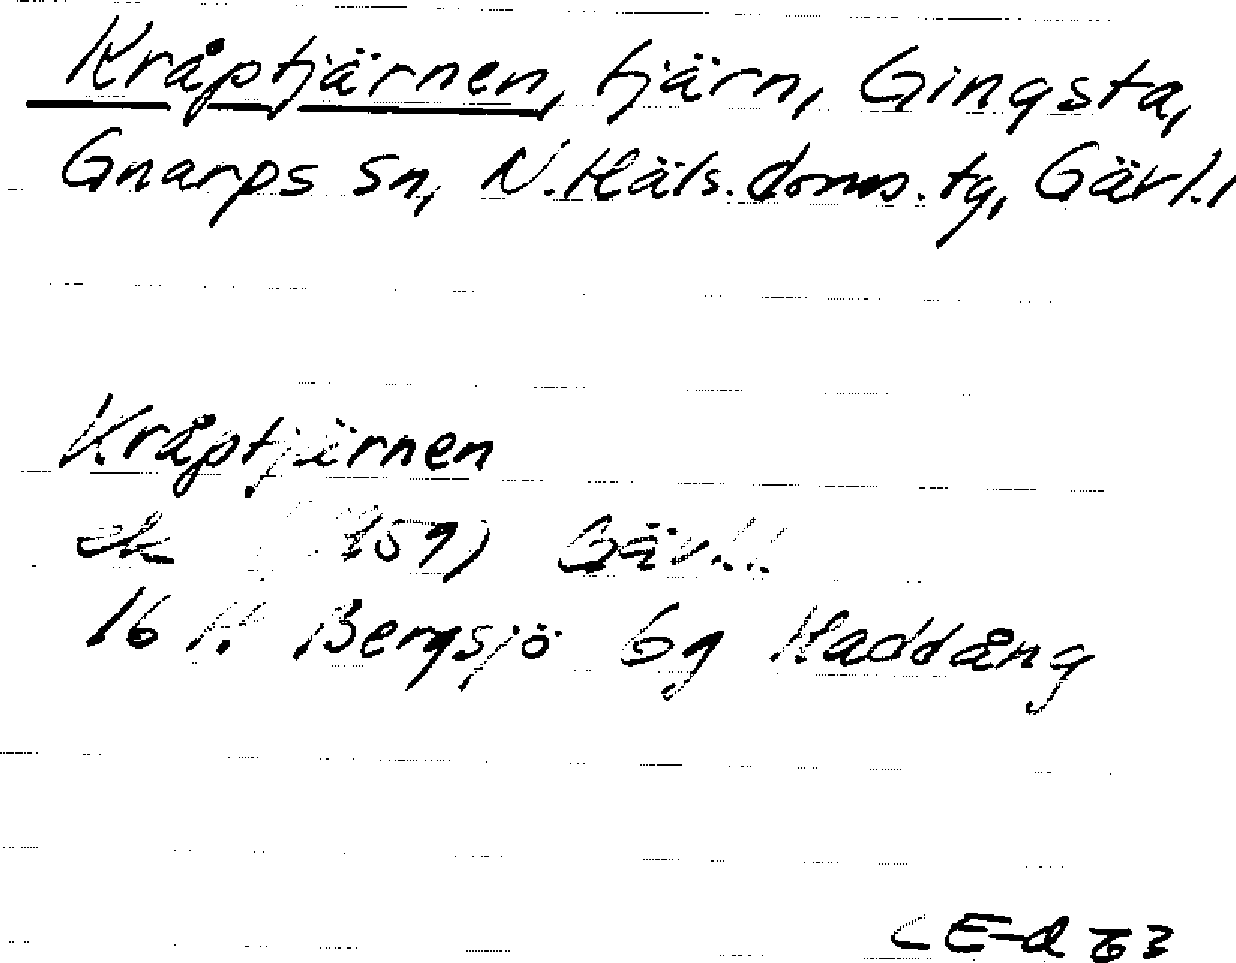 Kråptjärnen, tjärn, Gingsta,
Gnarps sn, N. Häls. doms. tg, Gävl.l
Kråptjärnen
ek 1959) Gävl.l
16 H Bergsjö 6g Haddång
CE-d 63